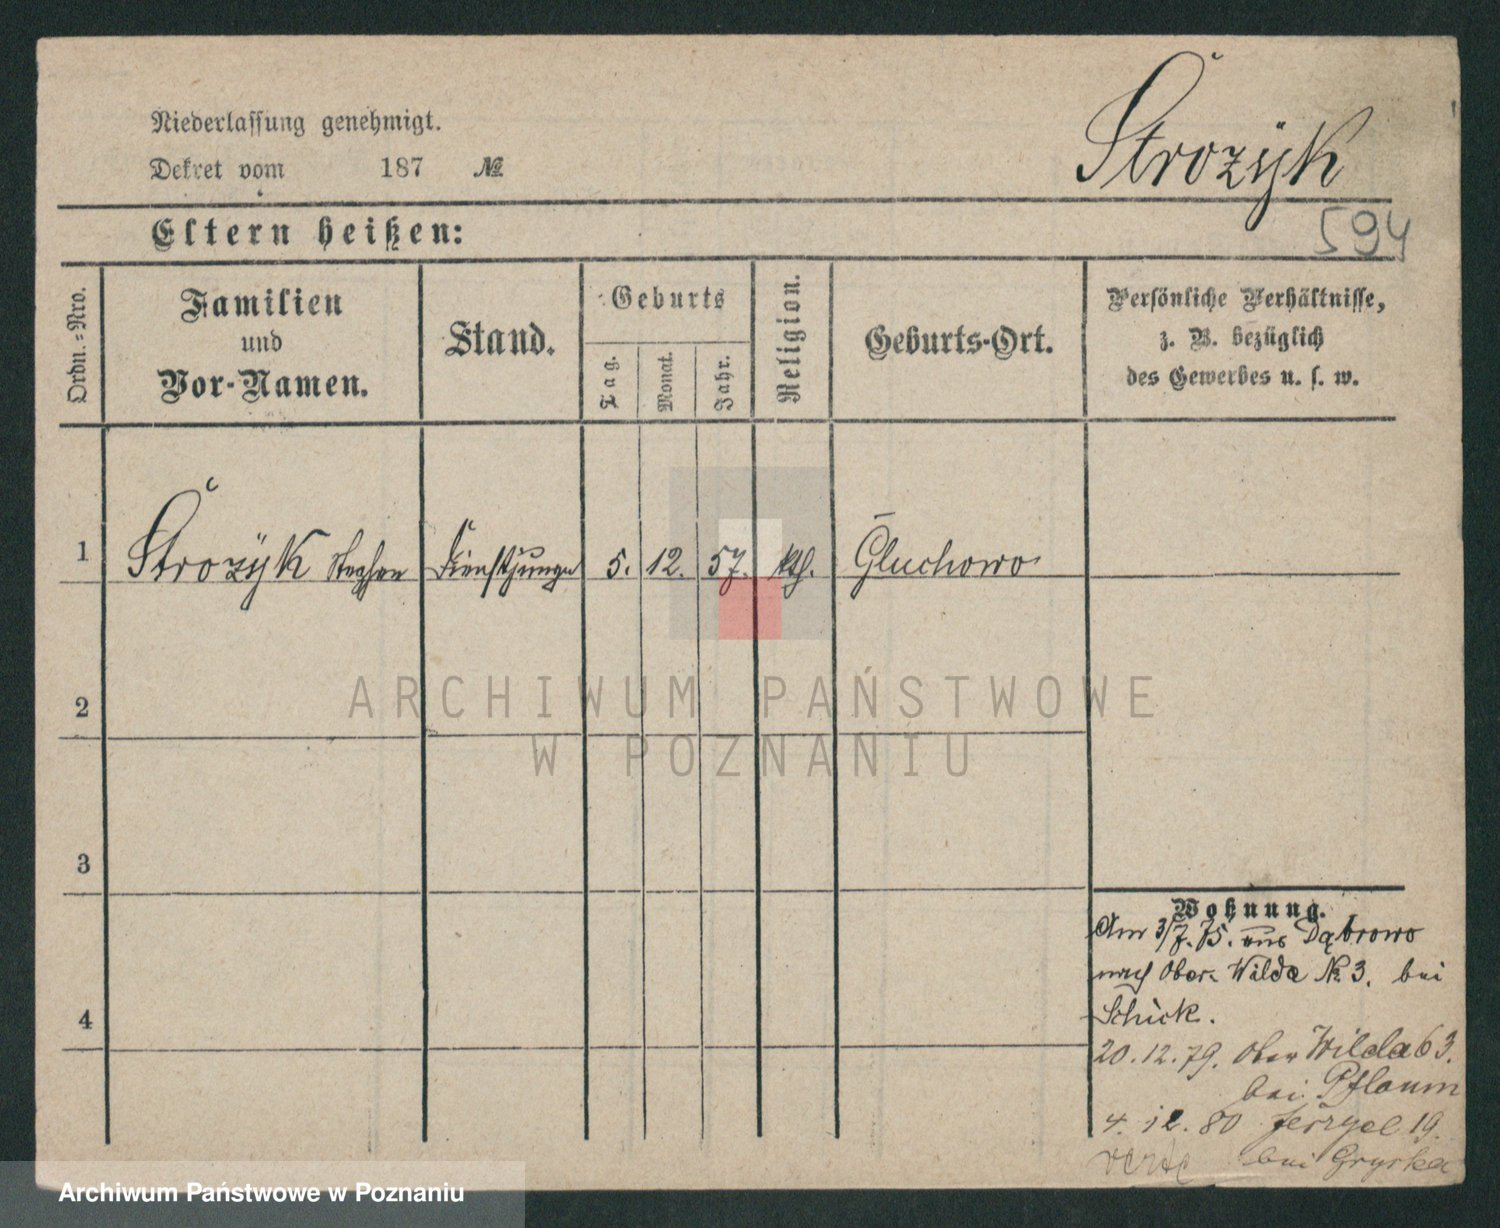 Niederlassung genehmigt.
Dekret vom 187 №
Strozÿk
594
Eltern heißen:
Ordn.=Nro.
Familien
und
Vor-Namen.
Stand.
Geburts
Tag.
Monat.
Jahr.
Religion.
Geburts-Ort.
Persönliche Verhältnisse,
z. B. bezüglich
des Gewerbes u. s. w.
1 Strozÿk Stephan Dienstjunge 5. 12. 57. kth. Gluchowo
2
3
4
ARCHIWUM PAŃSTWOWE
W POZNANIU
Wohnung.
Am 3/7. 75. aus Dąbrowo
nach Ober Wilda № 3. bei
Schick.
20.12.79. Ober Wilda 63.
bei Pflaum
4. 12. 80 Jerzyce 19.
verte bei
Archiwum Państwowe w Poznaniu